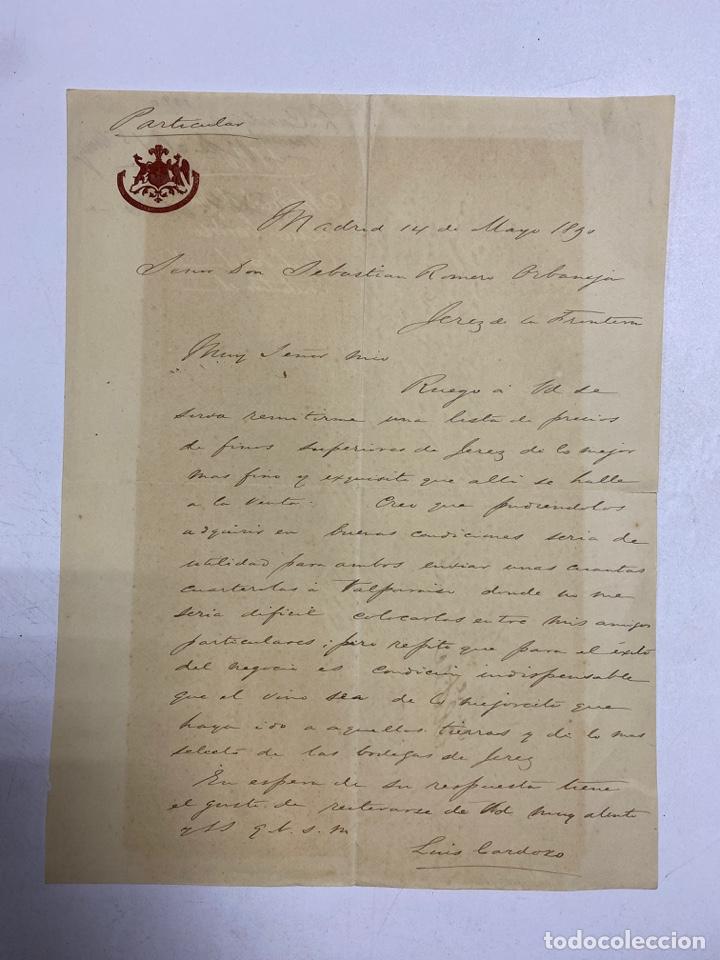 Particular
Madrid 14 de Mayo 1890
Señor Don Sebastian Romero Orbaneja
Jerez de la Frontera
Muy Señor mio
Ruego á Vd se
sirva remitirme una lista de precios
de finos superiores de Jerez de lo mejor
mas fino y exquisito que alli se halle
a la venta. Creo que pudiendolos
adquirir en buenas condiciones seria de
utilidad para ambos enviar unas cuantas
cuarterolas á Valparaiso donde no me
seria dificil colocarlas entre mis amigos
particulares; pero repito que para el éxito
del negocio es condicion indispensable
que el vino sea de lo mejorcito que
haya ido a aquellas tierras y de lo mas
selecto de las bodegas de Jerez
En espera de su respuesta tiene
el gusto de reiterarse de Vd muy atento
y SS q. b. s. m
Luis Cardozo
todocoleccion
todocoleccion.net